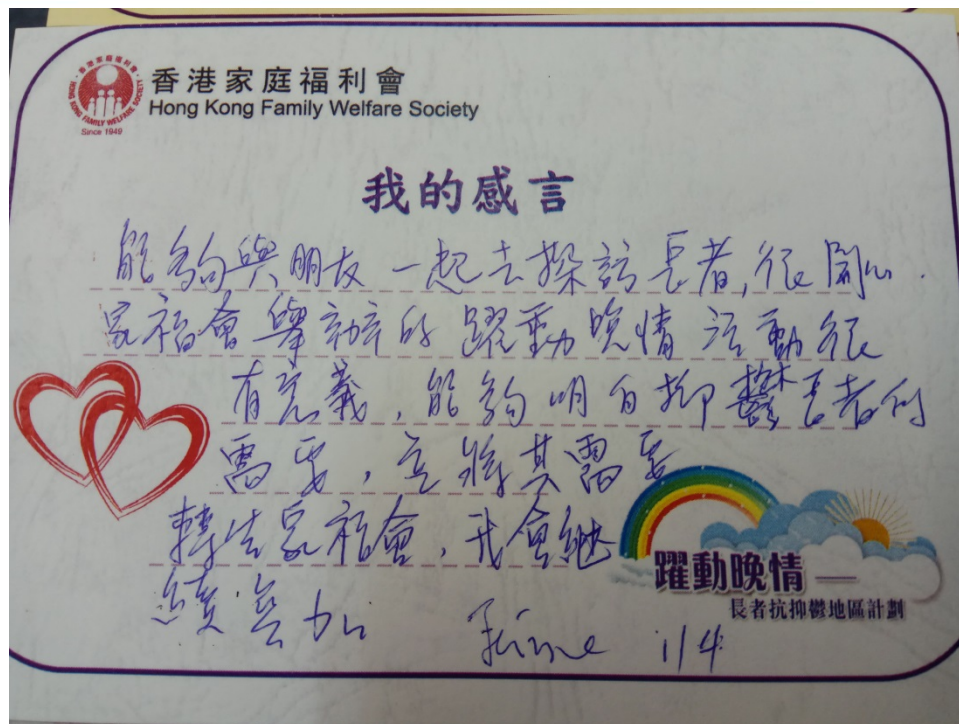 香港家庭福利會
Hong Kong Family Welfare Society
HONG KONG FAMILY WELFARE SOCIETY
Since 1949
我的感言
能夠與朋友一起去探訪長者,很開心.
家福會舉辦的躍動晚情活動很
有意義,能夠明白抑鬱長者的
需要,並將其需要
轉告家福會,我會繼
續參加
1/4
躍動晚情
長者抗抑鬱地區計劃